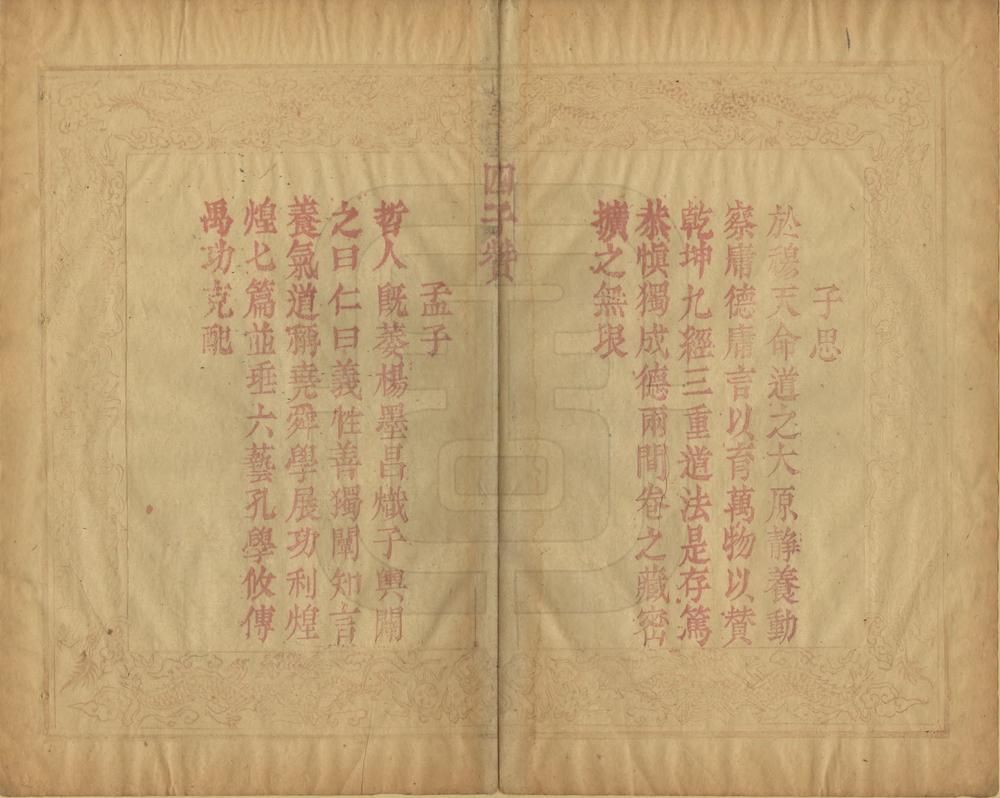 子思
於穆天命道之大原靜養動
察庸德庸言以育萬物以贊
乾坤九經三重道法是存篤
恭愼獨成德兩間卷之藏密
擴之無垠
四子贊
孟子
哲人旣萎楊墨昌熾子輿闢
之曰仁曰義性善獨闡知言
養氣道稱堯舜學屏功利煌
煌七篇並垂六藝孔學攸傳
禹功克配